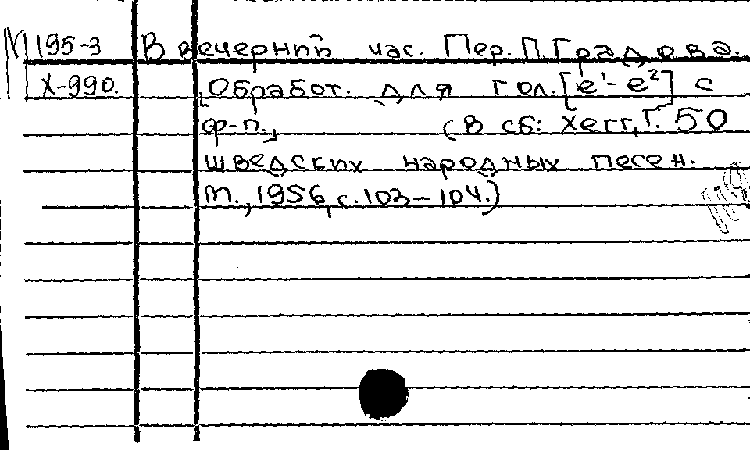 М195-3 В вечерний час. Пер. П. Градова.
Х-990. [Обработ. для гол. [e¹-e²] с
ф-п.] (В сб: Хегг, Г. 50
шведских народных песен.
М., 1956, с. 103-104.)